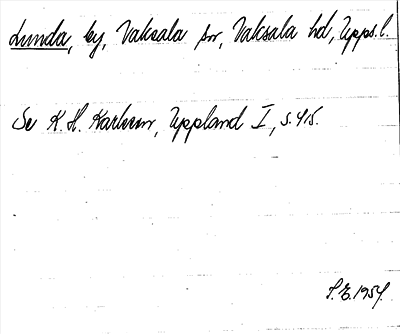 Lunda, by, Vaksala sn, Vaksala hd, Upps. l.
Se K. H. Karlsson, Uppland I, s. 415.
S. E. 1954.